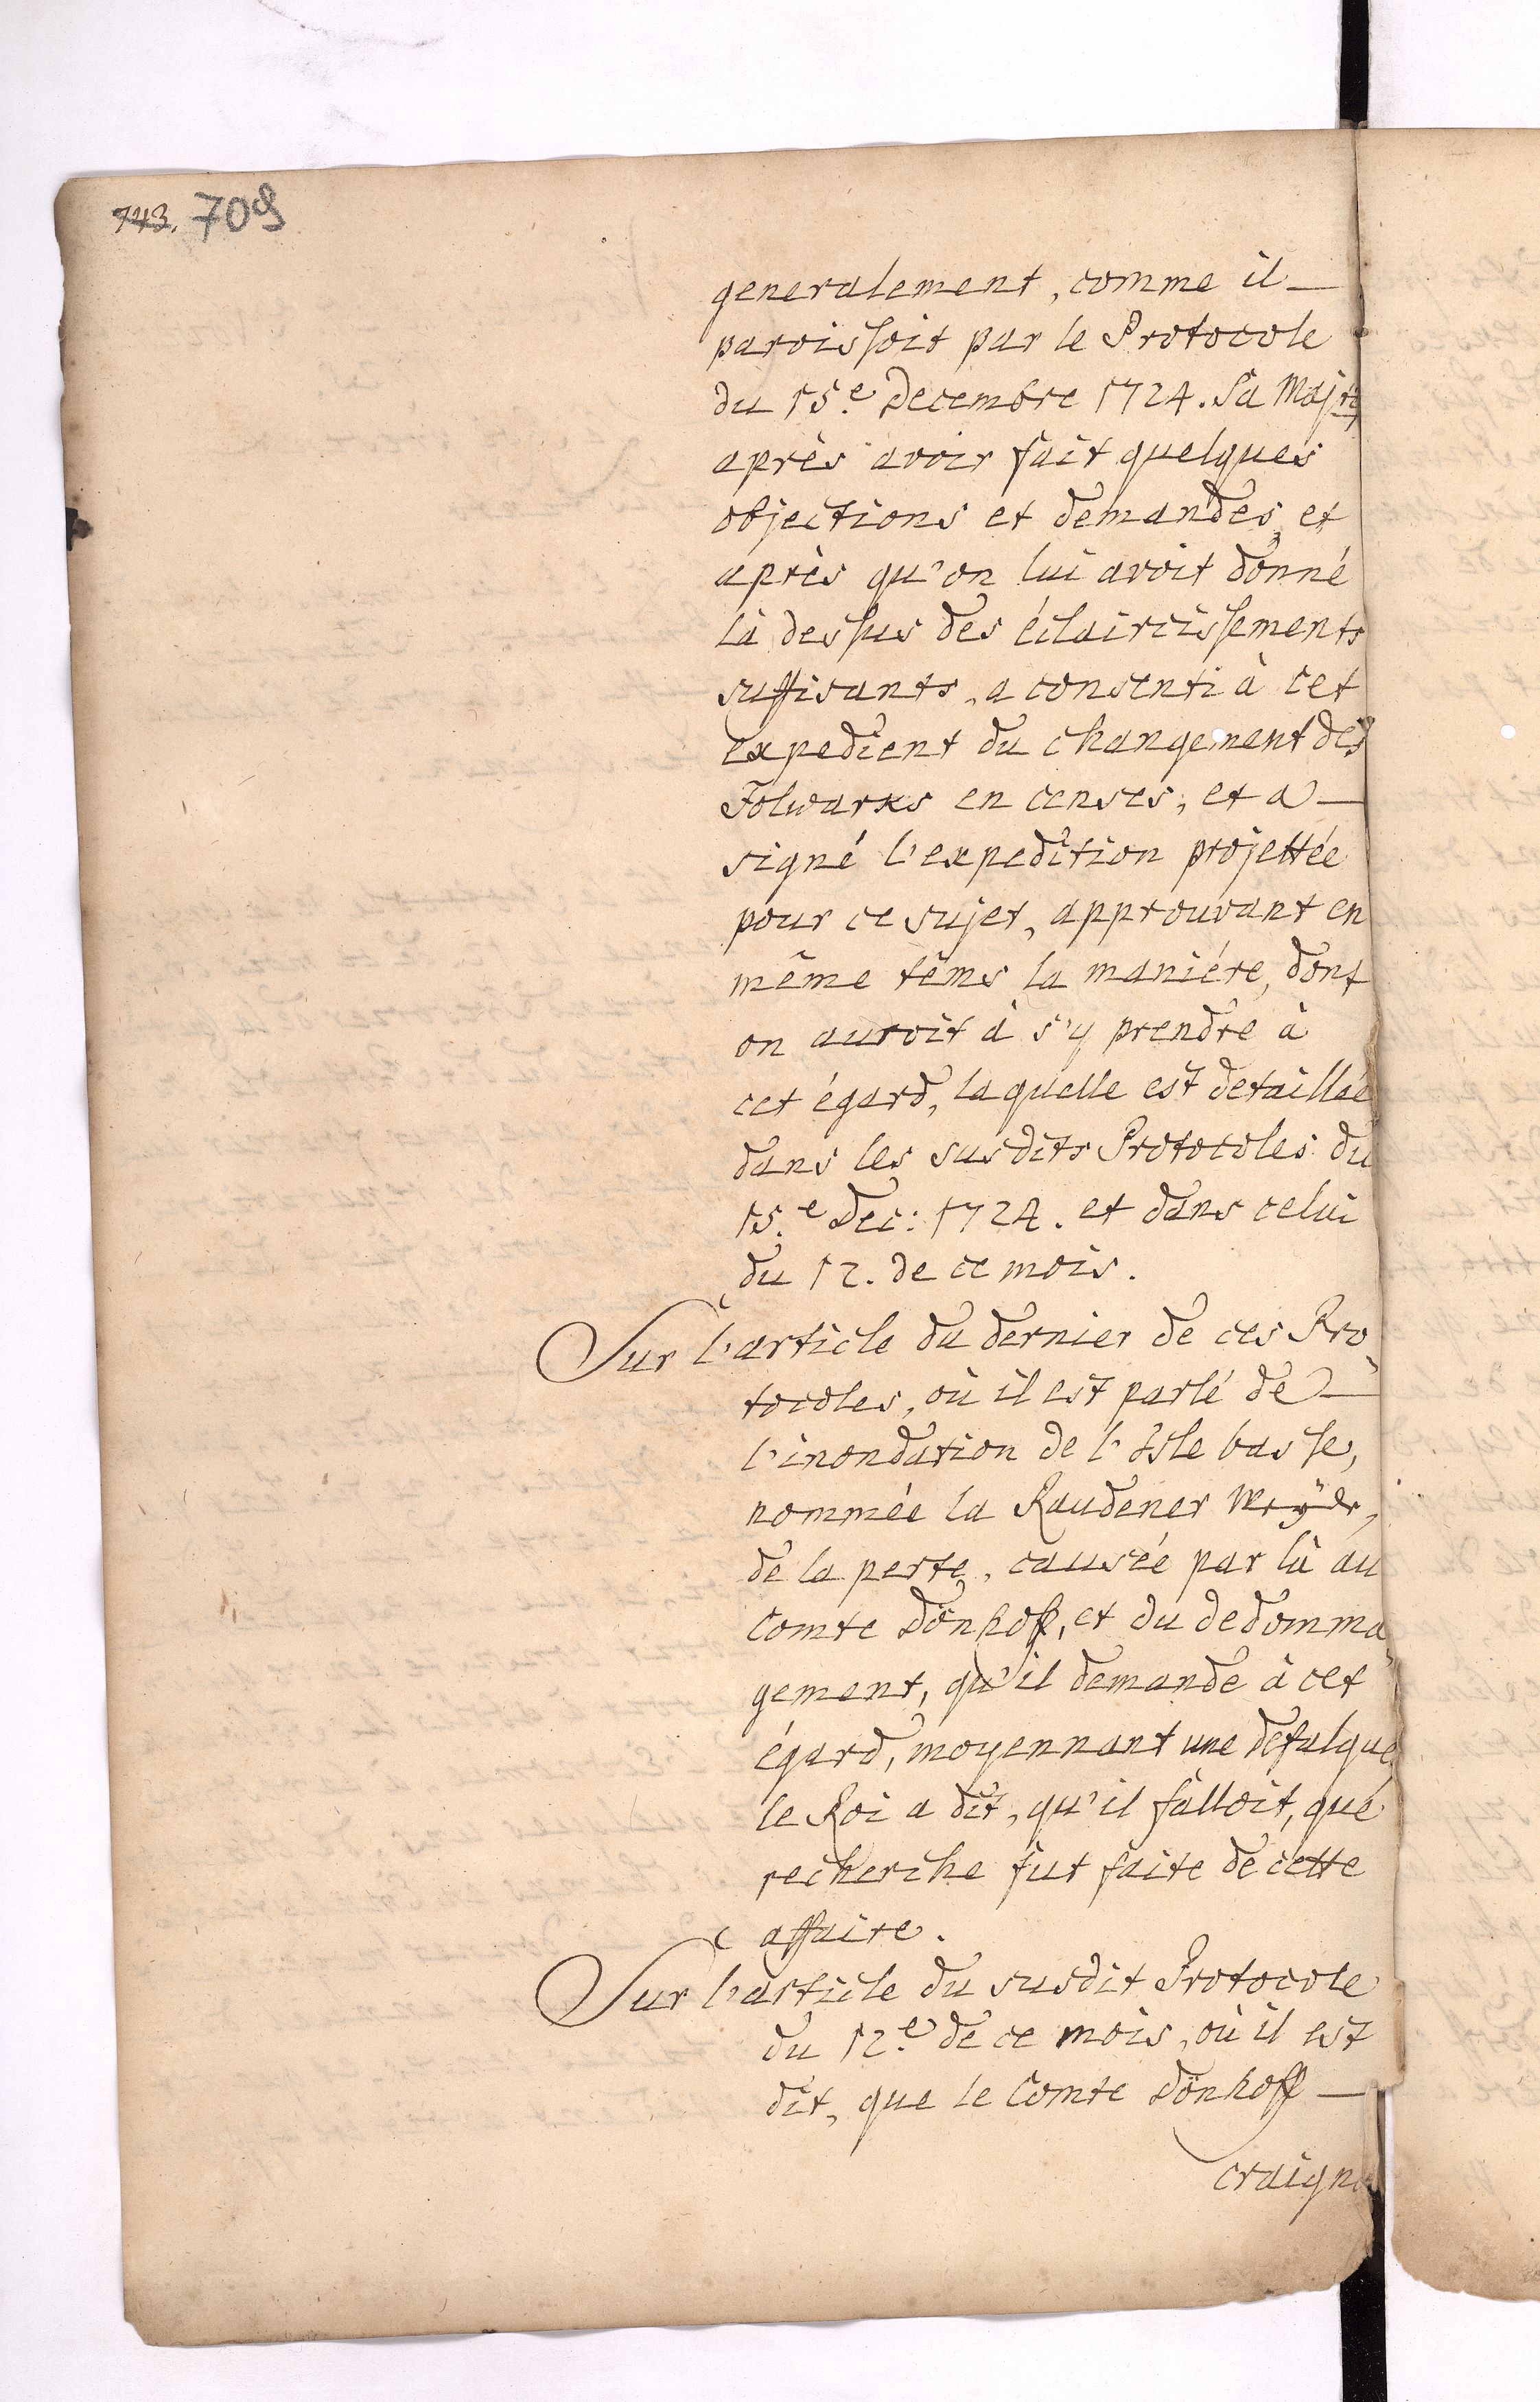 743. 709
generalement, comme il
paroissoit par le Protocole
du 15.e Decembre 1724. Sa Majté
après avoir fait quelques
objections et demandes, et
après qu'on lui avoit donné
là dessus des éclaircissements
suffisants, a consenti à cet
expedient du changement des
Folwarks en censes, et a
signé l'expedition projettée
pour ce sujet, approuvant en
même têms la maniére, dont
on auroit à s'y prendre à
cet égard, laquelle est detaillée
dans les susdits Protocoles du
15.e Dec: 1724. et dans celui
du 12. de ce mois.
Sur l'article du dernier de ces Pro
tocoles, où il est parlé de
l'inondation de l'Isle basse,
nommée la Raudener Weÿde,
de la perte, causée par là au
Comte Dönhoff, et du dedomma
gement, qu'il demande à cet
égard, moyennant une defalque,
le Roi a dit, qu'il falloit, que
recherche fut faite de cette
affaire.
Sur l'article du susdit Protocole
du 12.e de ce mois, où il est
dit, que le Comte Dönhoff